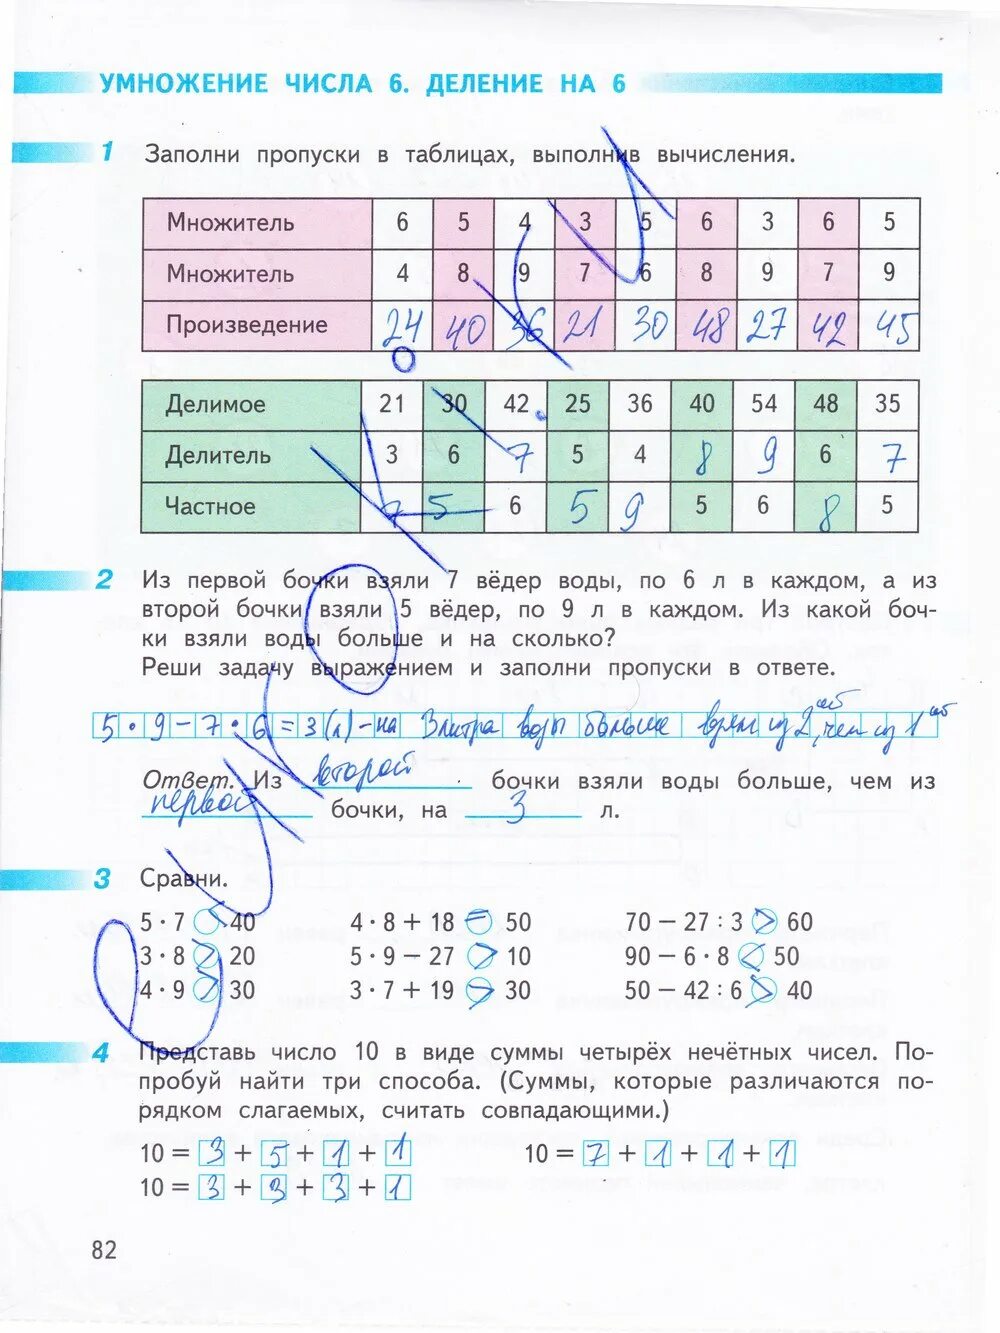 УМНОЖЕНИЕ ЧИСЛА 6. ДЕЛЕНИЕ НА 6
1 Заполни пропуски в таблицах, выполнив вычисления.
Множитель 6 5 4 3 5 6 3 6 5
Множитель 4 8 9 7 6 8 9 7 9
Произведение 24 40 36 21 30 48 27 42 45
Делимое 21 30 42 25 36 40 54 48 35
Делитель 3 6 7 5 4 8 9 6 7
Частное 7 5 6 5 9 5 6 8 5
2 Из первой бочки взяли 7 вёдер воды, по 6 л в каждом, а из
второй бочки взяли 5 вёдер, по 9 л в каждом. Из какой боч-
ки взяли воды больше и на сколько?
Реши задачу выражением и заполни пропуски в ответе.
5 · 9 − 7 · 6 = 3 (л) – на 3 литра воды больше взяли из 2, чем из 1
Ответ. Из второй бочки взяли воды больше, чем из
первой бочки, на 3 л.
3 Сравни.
5 · 7 40 4 · 8 + 18 = 50 70 − 27 : 3 > 60
3 · 8 > 20 5 · 9 − 27 > 10 90 − 6 · 8 < 50
4 · 9 > 30 3 · 7 + 19 > 30 50 − 42 : 6 > 40
4 Представь число 10 в виде суммы четырёх нечётных чисел. По-
пробуй найти три способа. (Суммы, которые различаются по-
рядком слагаемых, считать совпадающими.)
10 = 3 + 5 + 1 + 1 10 = 7 + 1 + 1 + 1
10 = 3 + 3 + 3 + 1
82